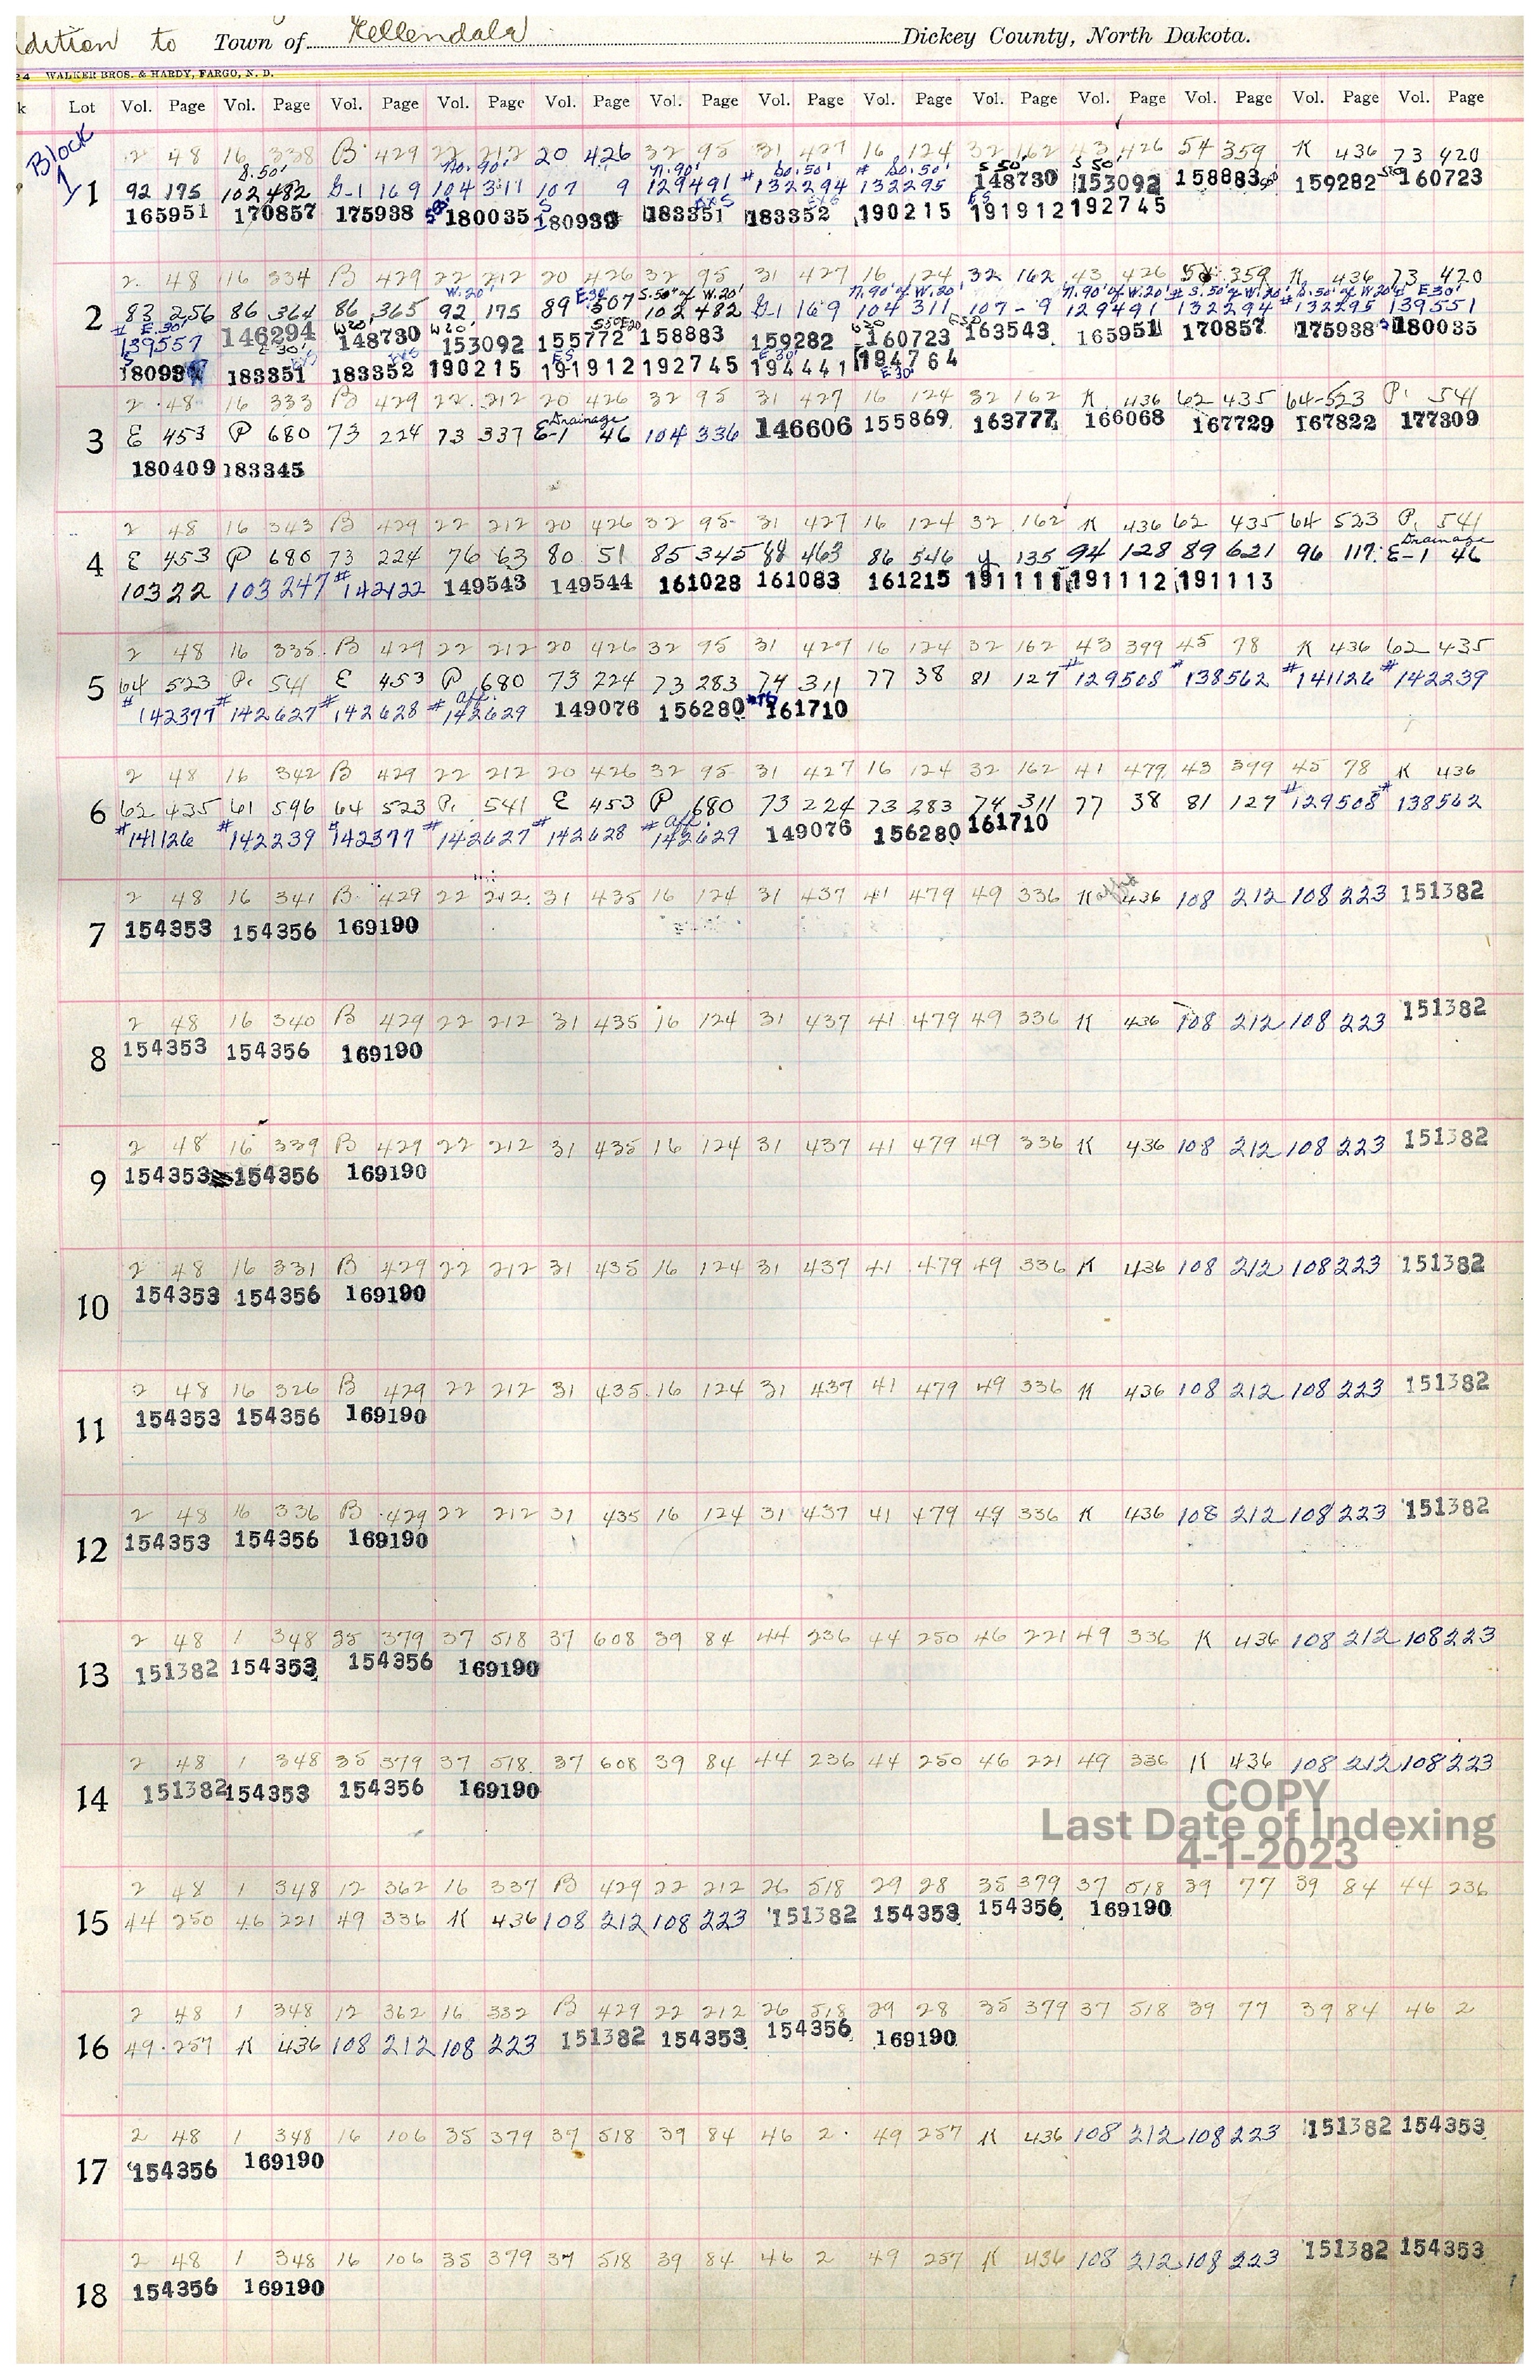 dition to Town of Kellendala Dickey County, North Dakota.
24 WALKER BROS. & HARDY, FARGO, N. D.
k Lot Vol. Page Vol. Page Vol. Page Vol. Page Vol. Page Vol. Page Vol. Page Vol. Page Vol. Page Vol. Page Vol. Page Vol. Page Vol. Page
Block 1
2 48 16 338 B 429 22 212 20 426 32 95 31 427 16 124 32 162 43 426 54 359 K 436 73 420
S.50' No. 90' N.90' So.50' So.50' S 50' S 50'
1 92 175 102 482 G-1 169 104 311 107 9 129491 #132294 #132295 148730 153092 158883 159282 160723
165951 170857 175938 180035 180939 183351 183352 190215 191912 192745
2 48 16 334 B 429 22 212 20 426 32 95 31 427 16 124 32 162 43 426 54 359 K 436 73 420
W.20' E30' S.50' of W.20' N.90' of W.20' N.90' of W.20' # S.50' of W.20' # S.50' of W.20' # E30'
2 83 256 86 364 86 365 92 175 89 507 102 482 G-1 169 104 311 107-9 129491 132294 132295 139551
# E.30' W20 W20'
139557 146294 148730 153092 155772 158883 159282 160723 163543 165951 170857 175938 180035
E30' E 30'
18093 183351 183352 190215 191912 192745 194441 194764
E30'
2 48 16 333 B 429 22 212 20 426 32 95 31 427 16 124 32 162 K 436 62 435 64-523 P. 541
Drainage
3 E 453 P 680 73 224 73 337 E-1 46 104 336 146606 155869 163777 166068 167729 167822 177309
180409 183345
2 48 16 343 B 429 22 212 20 426 32 95 31 427 16 124 32 162 K 436 62 435 64 523 P. 541
Drainage
4 E 453 P 680 73 224 76 63 80 51 85 345 88 463 86 546 Y 135 94 128 89 621 96 117 E-1 46
103 22 103 247 #142122 149543 149544 161028 161083 161215 191111 191112 191113
2 48 16 335 B 429 22 212 20 426 32 95 31 427 16 124 32 162 43 399 45 78 K 436 62 435
5 64 523 P. 541 E 453 P 680 73 224 73 283 74 311 77 38 81 127 #129508 #138562 #141126 #142239
aff.
#142377 #142627 #142628 #142629 149076 156280 161710
2 48 16 342 B 429 22 212 20 426 32 95 31 427 16 124 32 162 41 479 43 399 45 78 K 436
6 62 435 61 596 64 523 P. 541 E 453 P 680 73 224 73 283 74 311 77 38 81 127 #129508 #138562
aff.
#141126 #142239 #142377 #142627 #142628 #142629 149076 156280 161710
2 48 16 341 B 429 22 212 31 435 16 124 31 437 41 479 49 336 K 436 108 212 108 223 151382
7 154353 154356 169190
2 48 16 340 B 429 22 212 31 435 16 124 31 437 41 479 49 336 K 436 108 212 108 223 151382
8 154353 154356 169190
2 48 16 339 B 429 22 212 31 435 16 124 31 437 41 479 49 336 K 436 108 212 108 223 151382
9 154353 154356 169190
2 48 16 331 B 429 22 212 31 435 16 124 31 437 41 479 49 336 K 436 108 212 108 223 151382
10 154353 154356 169190
2 48 16 326 B 429 22 212 31 435 16 124 31 437 41 479 49 336 K 436 108 212 108 223 151382
11 154353 154356 169190
2 48 16 336 B 429 22 212 31 435 16 124 31 437 41 479 49 336 K 436 108 212 108 223 151382
12 154353 154356 169190
2 48 1 348 35 379 37 518 37 608 39 84 44 236 44 250 46 221 49 336 K 436 108 212 108 223
13 151382 154353 154356 169190
2 48 1 348 35 379 37 518 37 608 39 84 44 236 44 250 46 221 49 336 K 436 108 212 108 223
14 151382 154353 154356 169190
COPY
Last Date of Indexing
4-1-2023
2 48 1 348 12 362 16 337 B 429 22 212 26 518 29 28 35 379 37 518 39 77 39 84 44 236
15 44 250 46 221 49 336 K 436 108 212 108 223 151382 154353 154356 169190
2 48 1 348 12 362 16 332 B 429 22 212 26 518 29 28 35 379 37 518 39 77 39 84 46 2
16 49 257 K 436 108 212 108 223 151382 154353 154356 169190
2 48 1 348 16 106 35 379 37 518 39 84 46 2 49 257 K 436 108 212 108 223 151382 154353
17 154356 169190
2 48 1 348 16 106 35 379 37 518 39 84 46 2 49 257 K 436 108 212 108 223 151382 154353
18 154356 169190